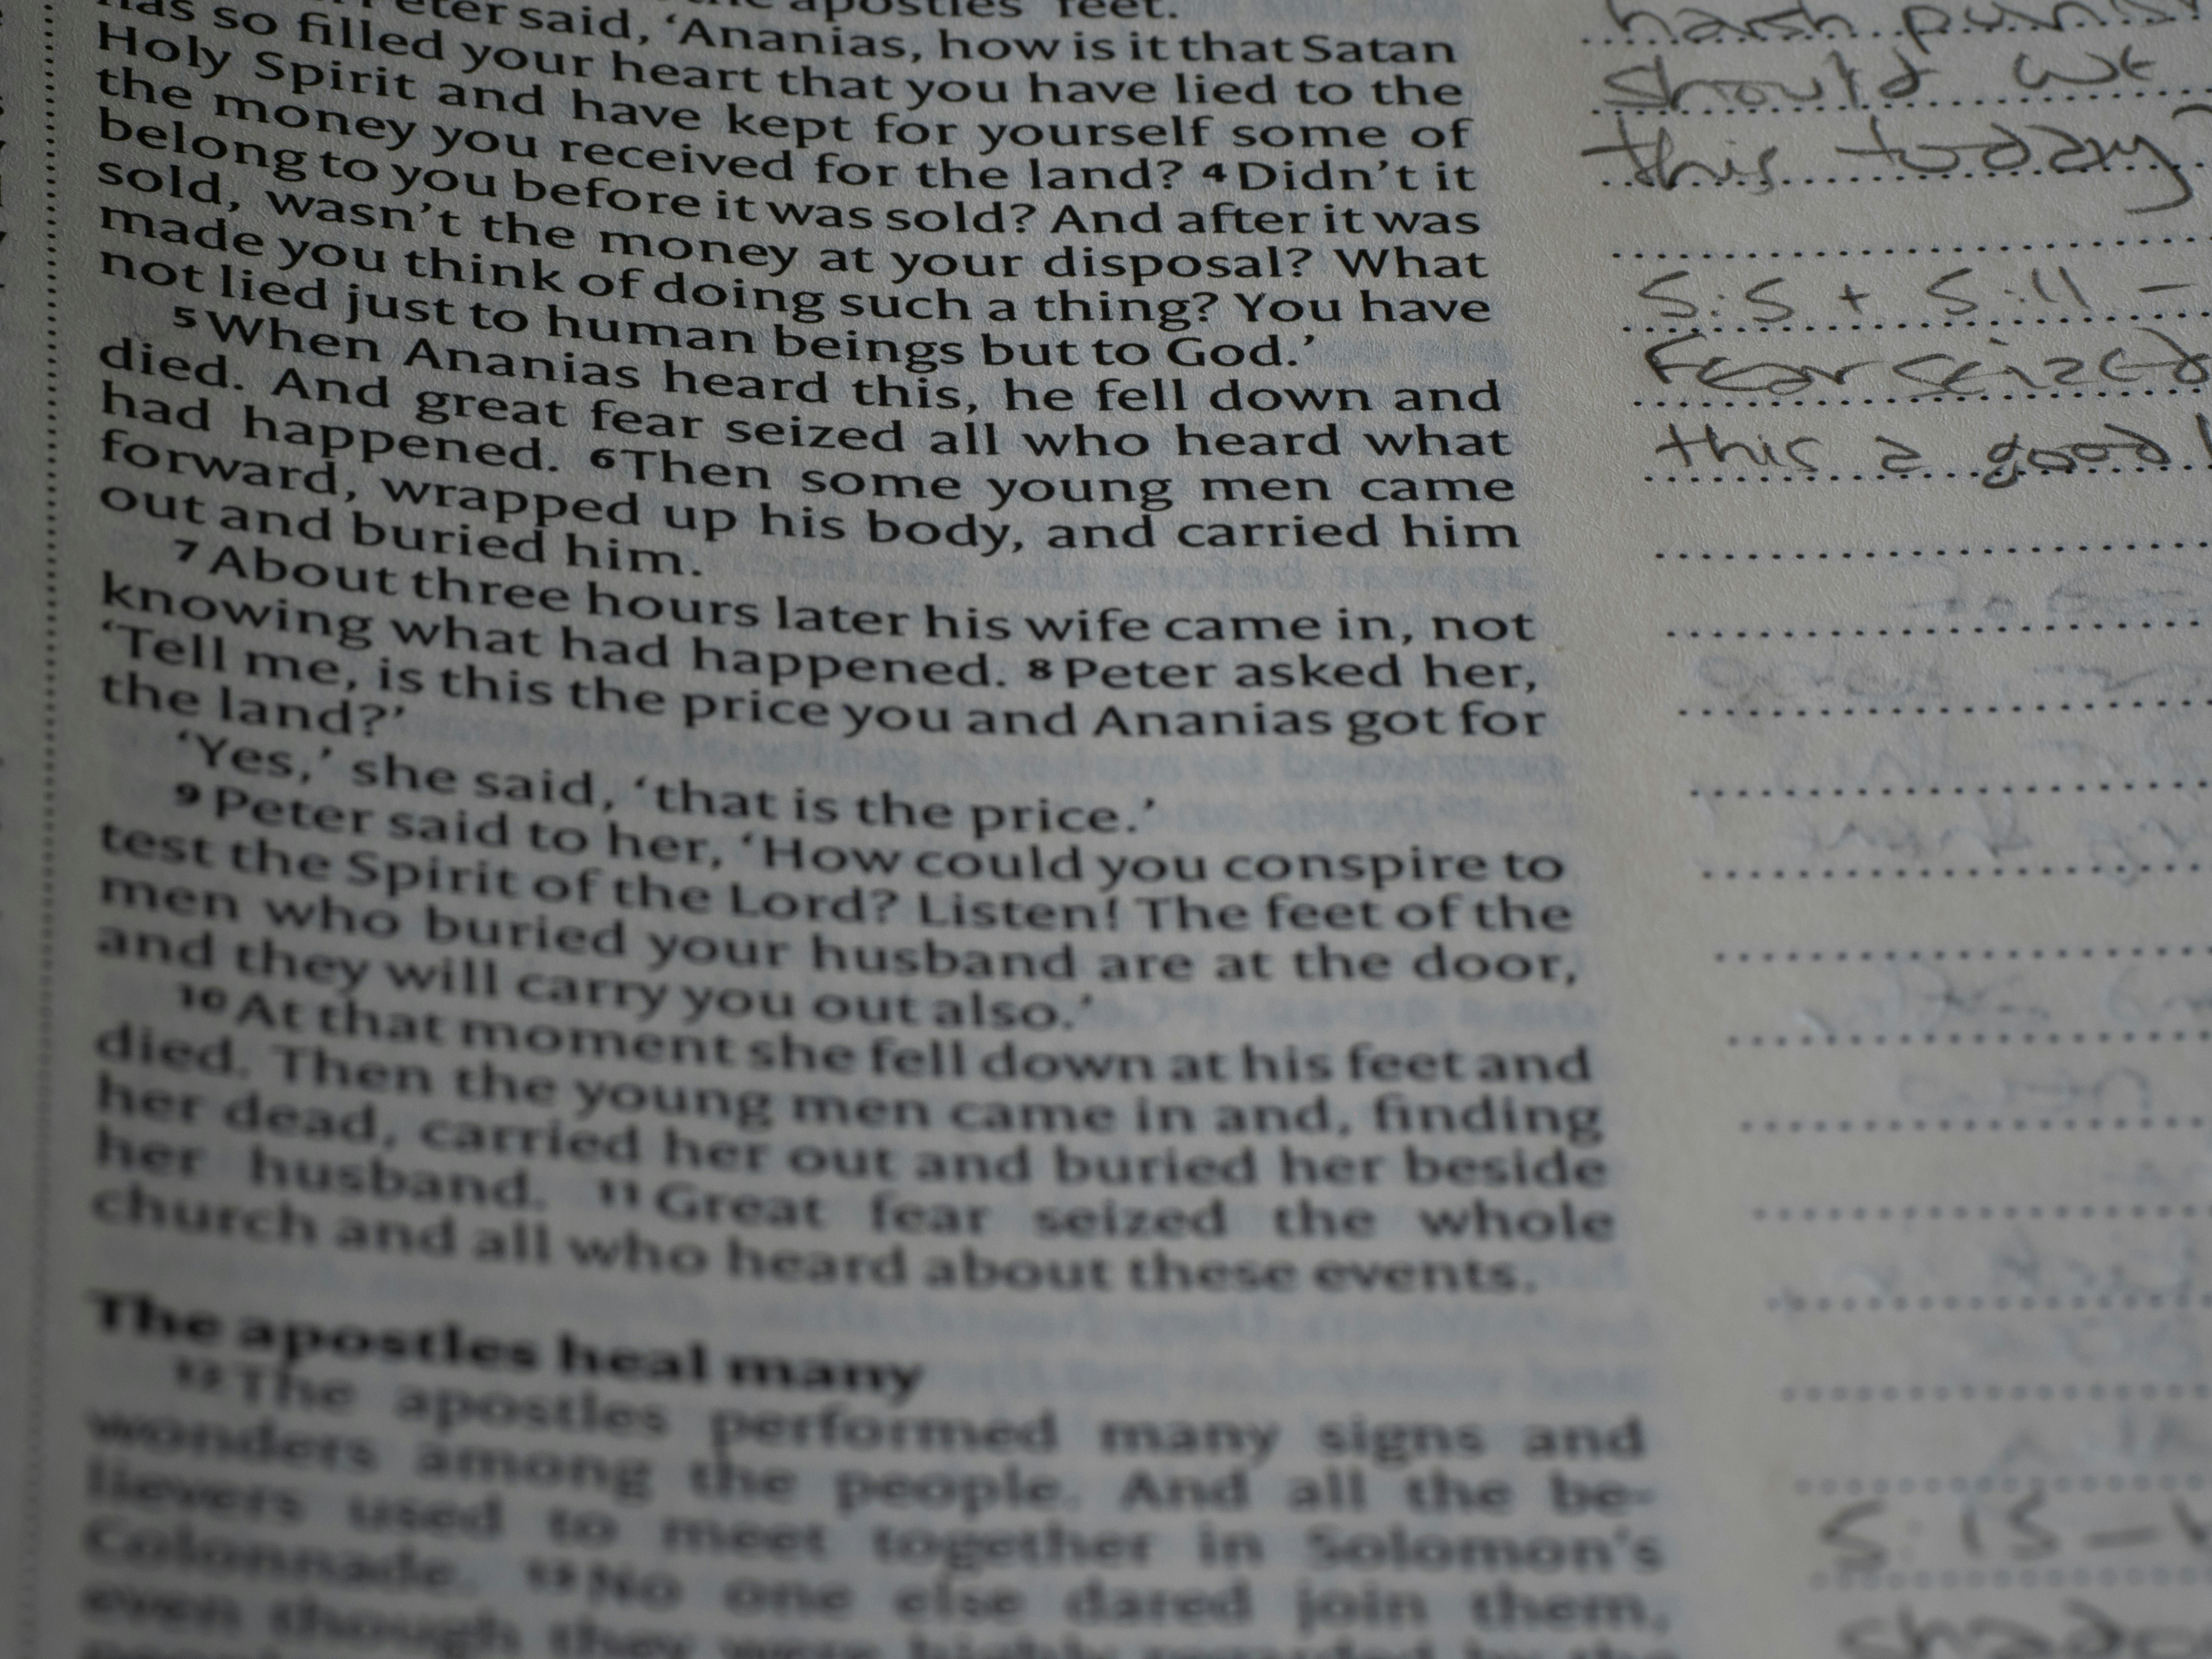 the apostles' feet.
Peter said, ‘Ananias, how is it that Satan
has so filled your heart that you have lied to the
Holy Spirit and have kept for yourself some of
the money you received for the land? 4 Didn’t it
belong to you before it was sold? And after it was
sold, wasn’t the money at your disposal? What
made you think of doing such a thing? You have
not lied just to human beings but to God.’
5 When Ananias heard this, he fell down and
died. And great fear seized all who heard what
had happened. 6 Then some young men came
forward, wrapped up his body, and carried him
out and buried him.
7 About three hours later his wife came in, not
knowing what had happened. 8 Peter asked her,
‘Tell me, is this the price you and Ananias got for
the land?’
‘Yes,’ she said, ‘that is the price.’
9 Peter said to her, ‘How could you conspire to
test the Spirit of the Lord? Listen! The feet of the
men who buried your husband are at the door,
and they will carry you out also.’
10 At that moment she fell down at his feet and
died. Then the young men came in and, finding
her dead, carried her out and buried her beside
her husband. 11 Great fear seized the whole
church and all who heard about these events.
The apostles heal many
12 The apostles performed many signs and
wonders among the people. And all the be-
lievers used to meet together in Solomon’s
Colonnade. 13 No one else dared join them,
even though they were highly regarded by the
harsh
should we
this today?
5:5 + 5:11 -
Fear seized
this a good
5:15 -